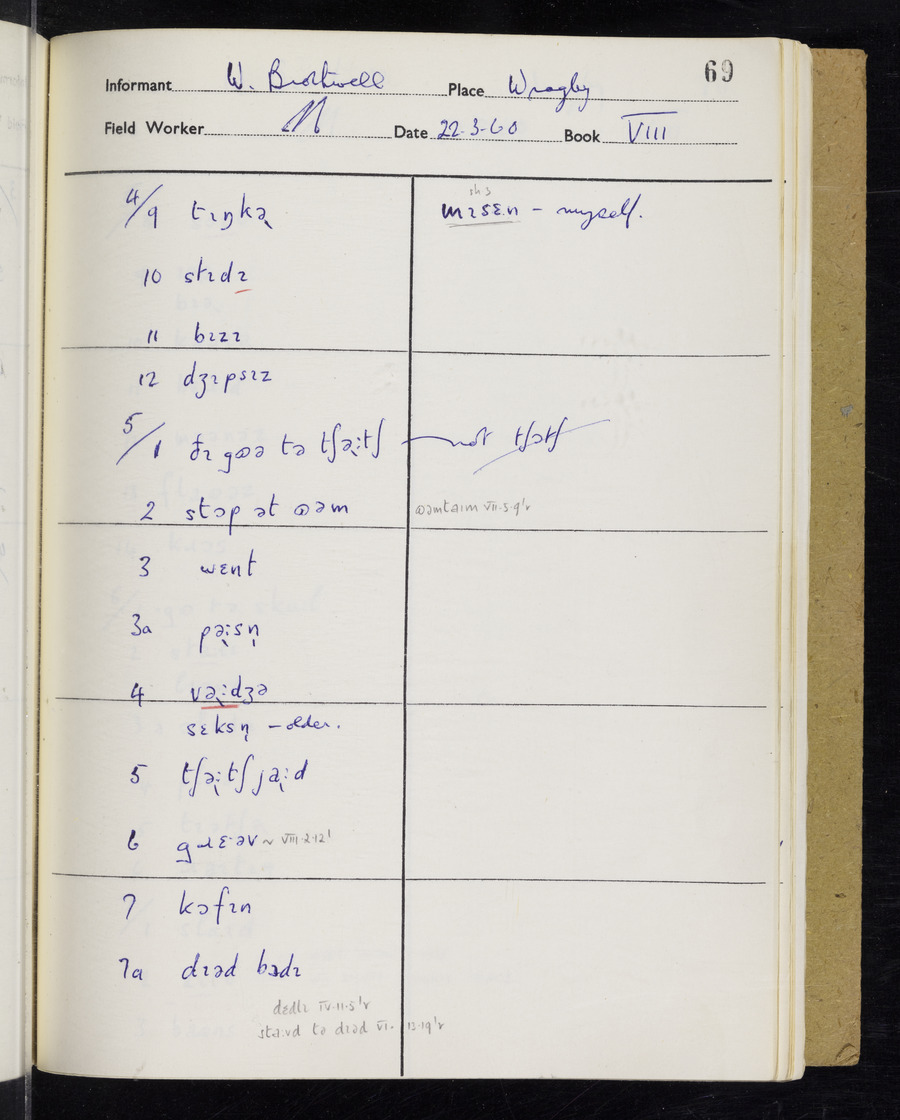 69
Informant W. Brotwell Place Wragby
Field Worker Date 22·3·60 Book VIII
4/9 tɪŋkə˞
shs
mɪsɛ.n – myself.
10 stɪdɪ
11 bɪzɪ
12 dʒɪpsɪz
5/1 ðɪ gɷə tə tʃə˞:tʃ — not tʃɔtʃ
2 stɔp ət ɷəm
ɷəmtaɪm VII·5·9'v
3 wɛnt
3a pə˞:sn̩
4 və˞:dʒə
sɛksn̩ – older.
5 tʃə˞:tʃ ja˞:d
6 gɹɛ·əv ~ VIII·2·12'
7 kɔfɪn
7a dɪəd bɔdɪ
dɛdlɪ IV·11·5'v
sta:vd tə dɪəd VI·13·19'v